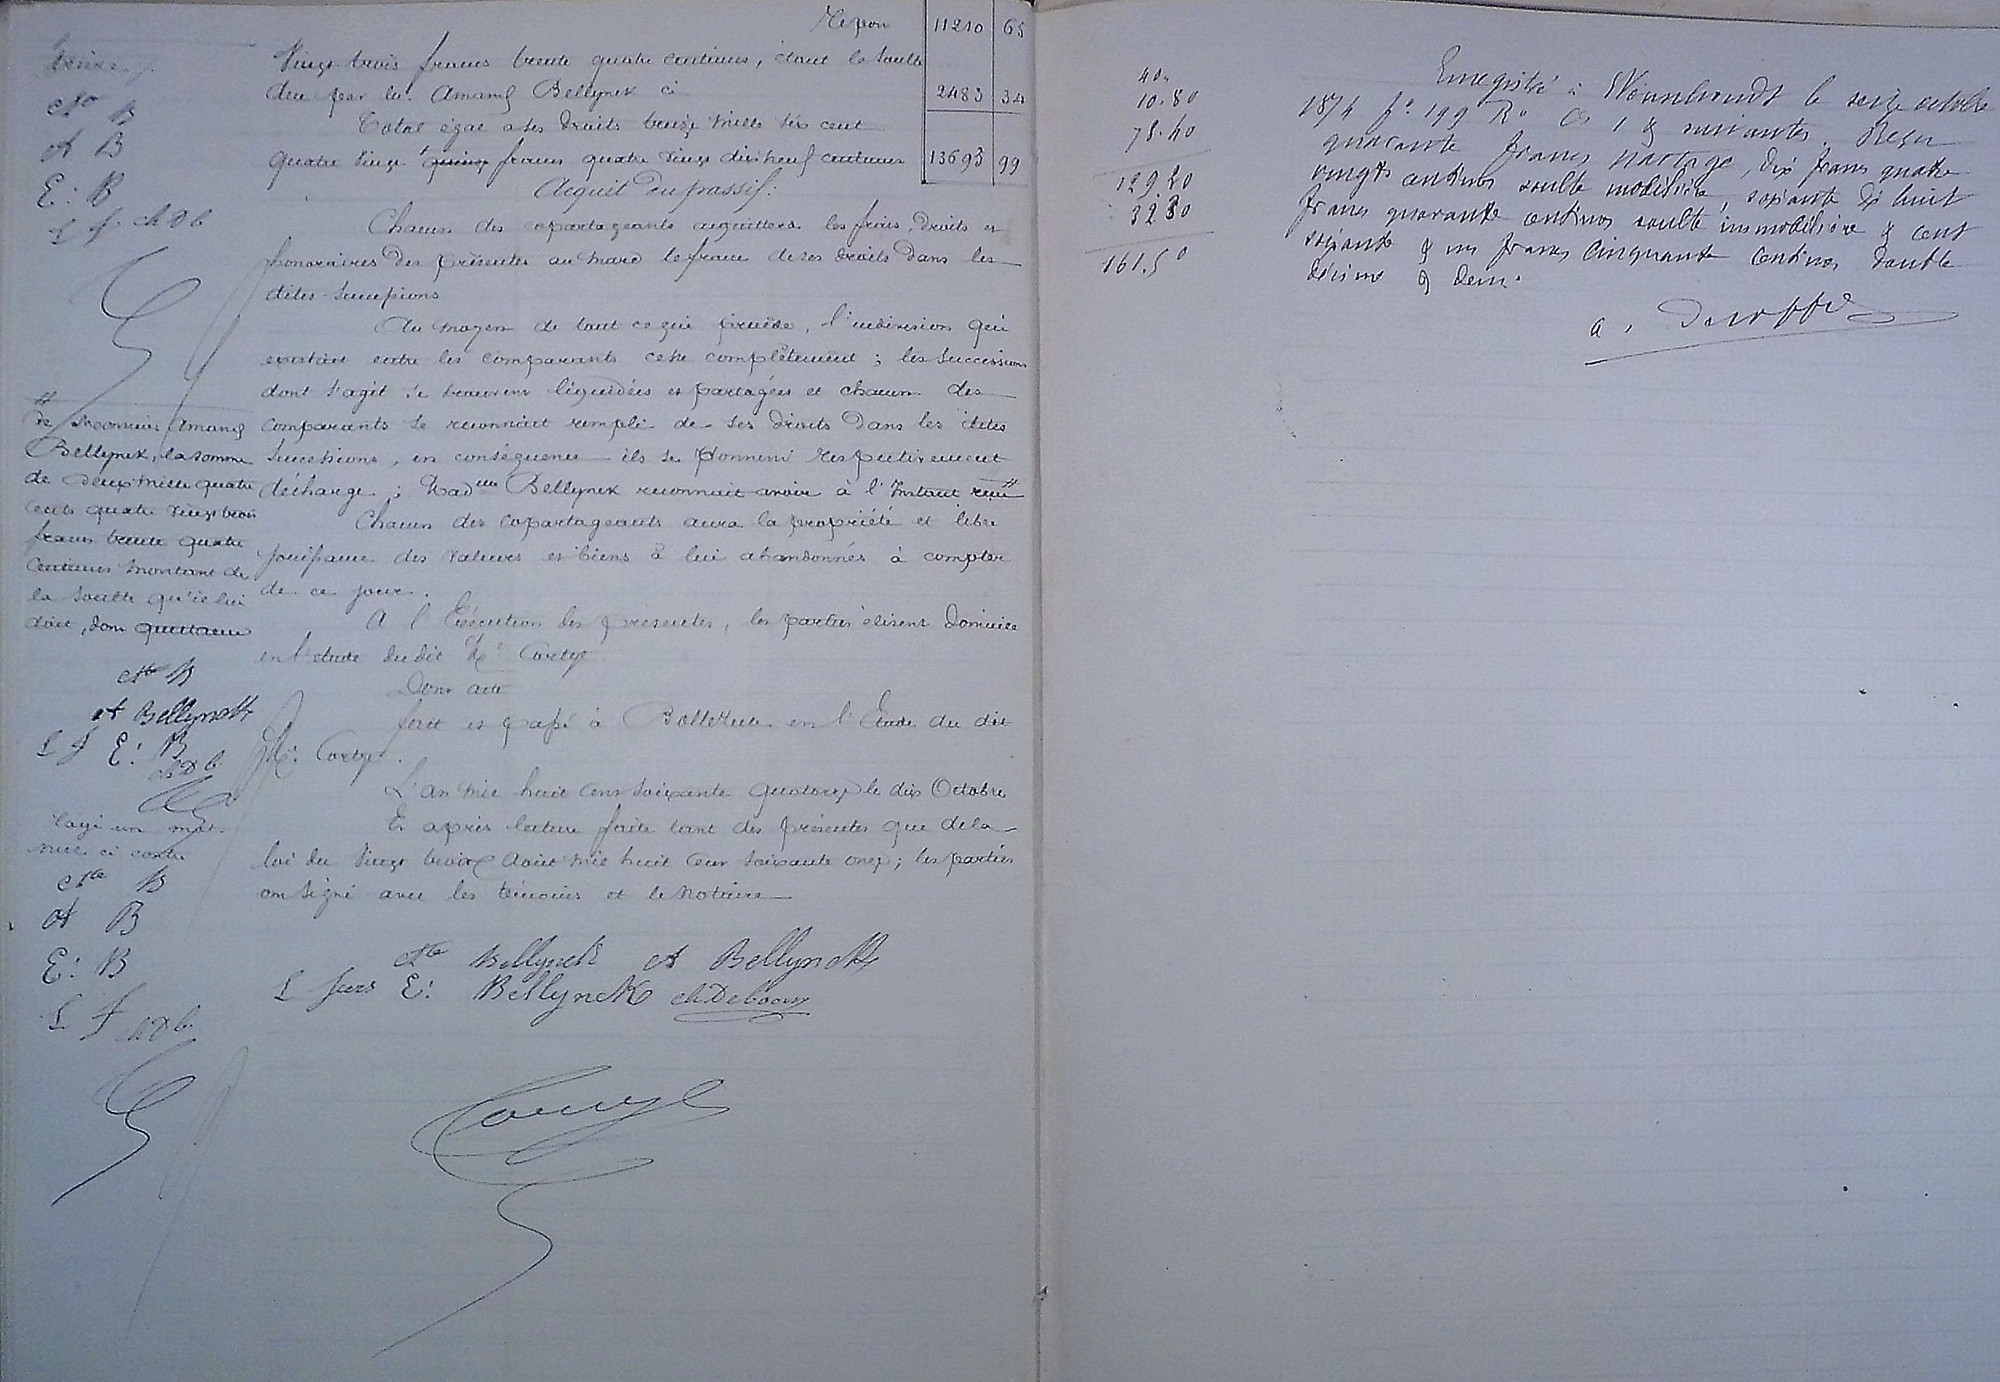 Report 11210 65
Vingt trois francs trente quatre centimes, étant la soulte
due par lui Amand Bellynck ci 2483 34
Total égal à ses droits treize mille six cent
quatre vingt francs quatre vingt dix neuf centimes 13693 99
Acquit du passif:
Chacun des copartageants acquittera les frais, droits et
honoraires des présentes au marc le franc de ses droits dans les
dites successions
Au moyen de tout ce qui précède, l'indivision qui
existait entre les comparants cesse complètement; les successions
dont s'agit se trouvent liquidées et partagées et chacun des
comparants se reconnait rempli de ses droits dans les dites
successions, en conséquence ils se donnent respectivement
décharge; Mad.elle Bellynck reconnait avoir à l'instant reçu #
Chacun des copartageants aura la propriété et libre
jouissance des valeurs et biens à lui abandonnés à compter
de ce jour.
A l'Exécution des présentes, les parties élisent domicile
en l'étude du dit Me
Dont acte
fait et passé à en l'Etude du dit
Me
L'an mil huit cent soixante quatorze le dix Octobre
Et après lecture faite tant des présentes que de la
loi du vingt trois Août mil huit cent soixante onze; les parties
ont signé avec les témoins et le notaire
Bellynck A Bellynck
L E: Bellynck
A B
E: B
L f. ch D b
#
de Amand
Bellynck, la somme
de deux mille quatre
cents quatre vingt trois
francs trente quatre
centimes montant de
la soulte qu'il lui
doit, dont quittance
B
A Bellynck
L f E: B
ch D b
rayé un mot
nul ci contre
B
A B
E: B
L f ch D b
40.
10.80
78.40
129.20
32.30
161.50
Enregistré à Wormhoudt le seize octobre
1874 fo. 199 Ro Cs 1 & suivantes. Reçu
quarante francs partage, dix francs quatre
vingts centimes soulte mobilière, soixante dix huit
francs quarante centimes soulte immobilière & cent
soixante & un francs cinquante centimes double
décime & demi.